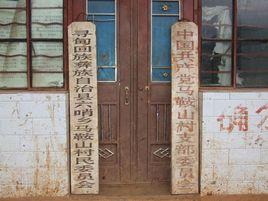 寻甸回族彝族自治县六哨乡马鞍山村民委员会
中国共产党马鞍山村支部委员会